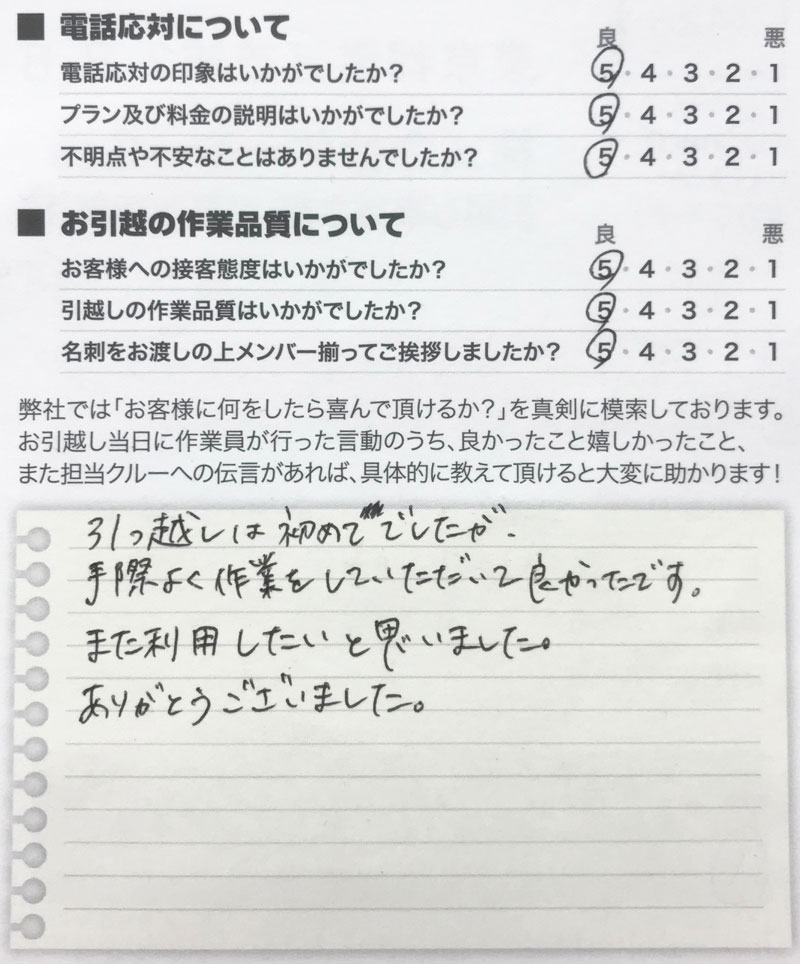 ■ 電話応対について
良 悪
電話応対の印象はいかがでしたか? 5・4・3・2・1
プラン及び料金の説明はいかがでしたか? 5・4・3・2・1
不明点や不安なことはありませんでしたか? 5・4・3・2・1
■ お引越の作業品質について
良 悪
お客様への接客態度はいかがでしたか? 5・4・3・2・1
引越しの作業品質はいかがでしたか? 5・4・3・2・1
名刺をお渡しの上メンバー揃ってご挨拶しましたか? 5・4・3・2・1
弊社では「お客様に何をしたら喜んで頂けるか?」を真剣に模索しております。
お引越し当日に作業員が行った言動のうち、良かったこと嬉しかったこと、
また担当クルーへの伝言があれば、具体的に教えて頂けると大変に助かります!
引っ越しは初めてでしたが、
手際よく作業をしていただいて良かったです。
また利用したいと思いました。
ありがとうございました。